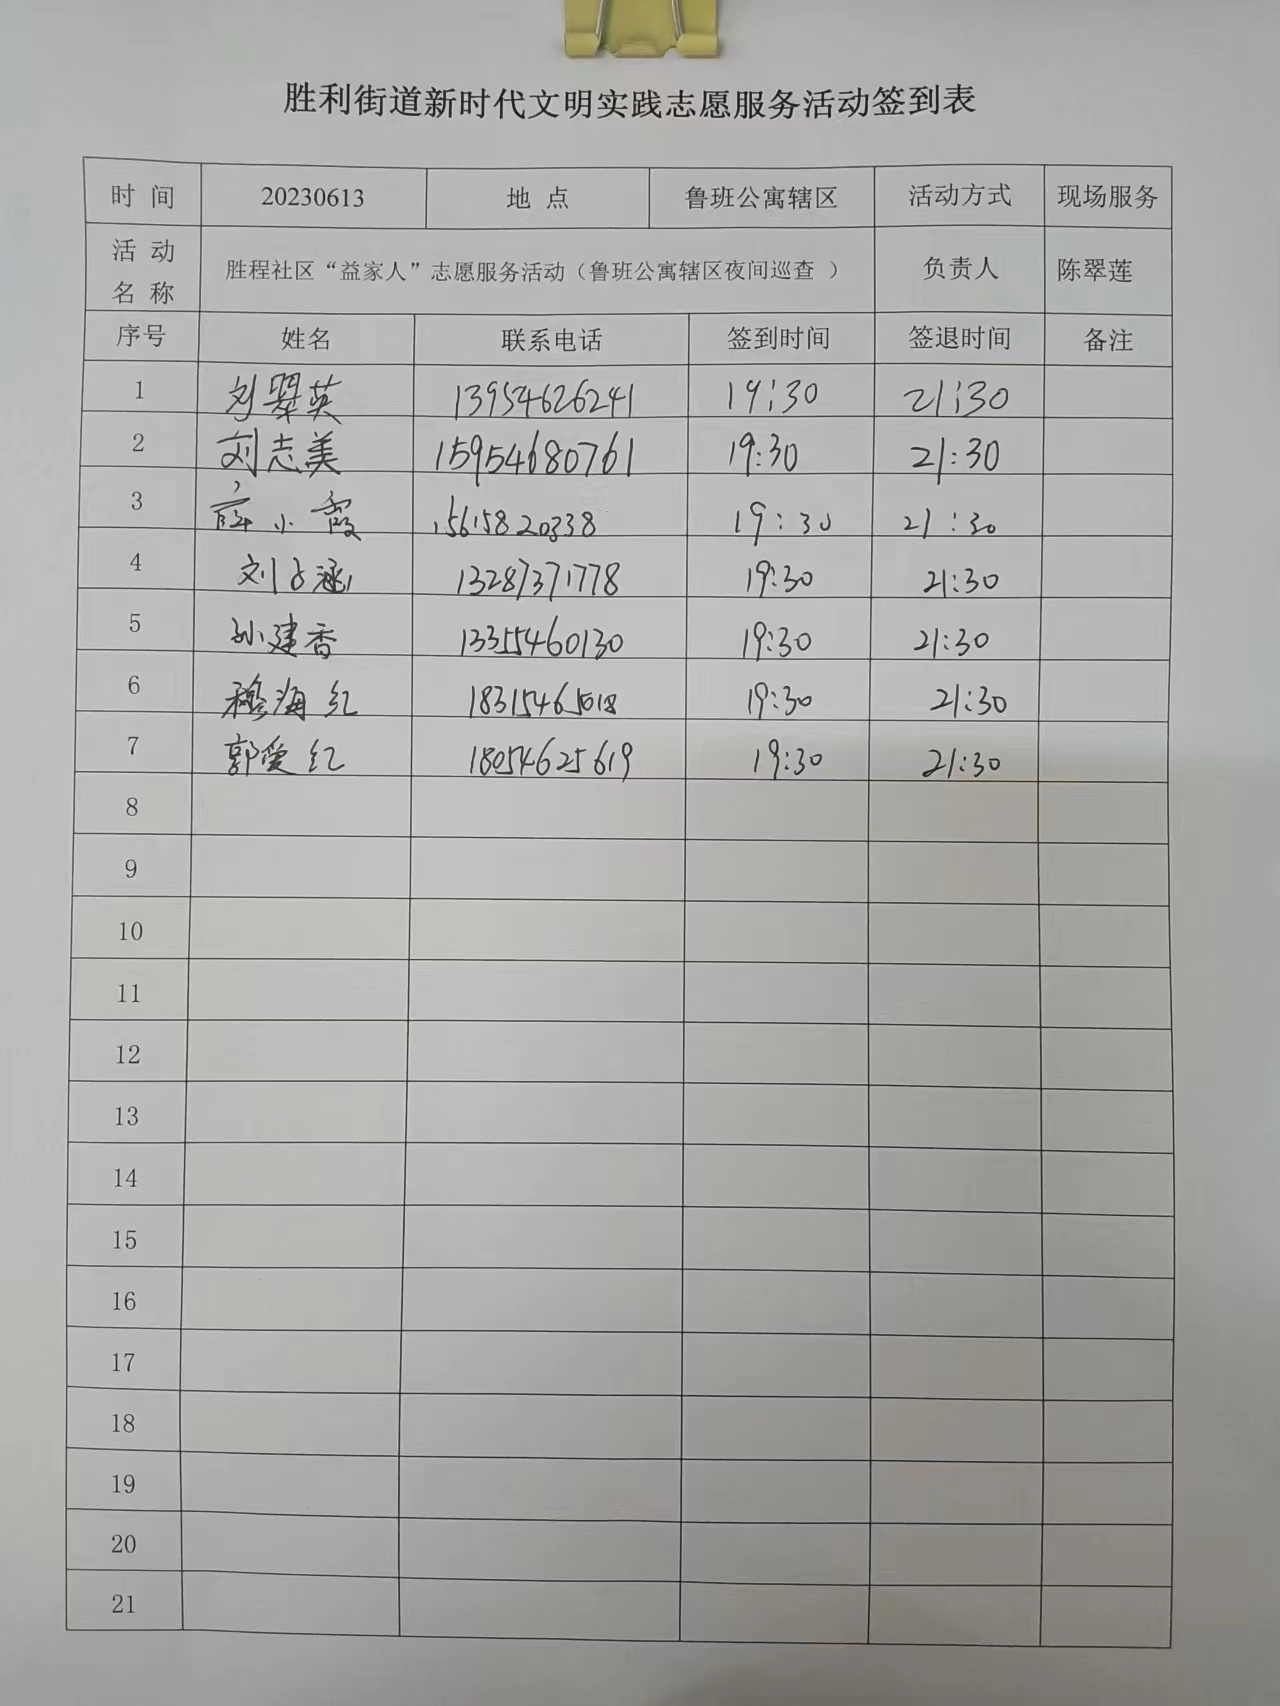 胜利街道新时代文明实践志愿服务活动签到表
时 间 20230613 地 点 鲁班公寓辖区 活动方式 现场服务
活 动 名 称 胜程社区“益家人”志愿服务活动（鲁班公寓辖区夜间巡查 ） 负责人 陈翠莲
序号 姓名 联系电话 签到时间 签退时间 备注
1 刘翠英 13954626241 19:30 21:30
2 刘志美 15954680761 19:30 21:30
3 薛小霞 15615820338 19:30 21:30
4 刘 涵 13287371778 19:30 21:30
5 孙建香 13355460130 19:30 21:30
6 穆海红 18315465018 19:30 21:30
7 郭爱红 18054625619 19:30 21:30
8
9
10
11
12
13
14
15
16
17
18
19
20
21